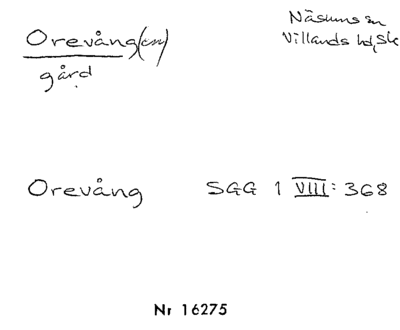 Orevång(en)
gård
Näsums sn
Villands hd, Sk
Orevång SGG 1 VIII: 368
Nr 16275